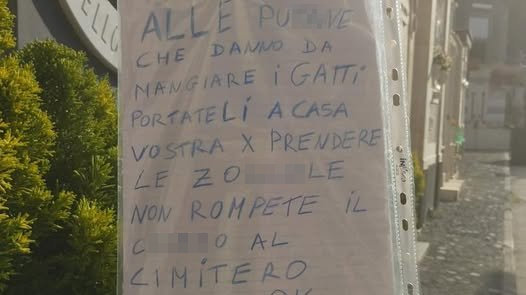 ELLO
ALLE PU NE
CHE DANNO DA
MANGIARE i GATTI
PORTATELI A CASA
VOSTRA X PRENDERE
LE ZO LE
NON ROMPETE IL
C O AL
CIMITERO
OK